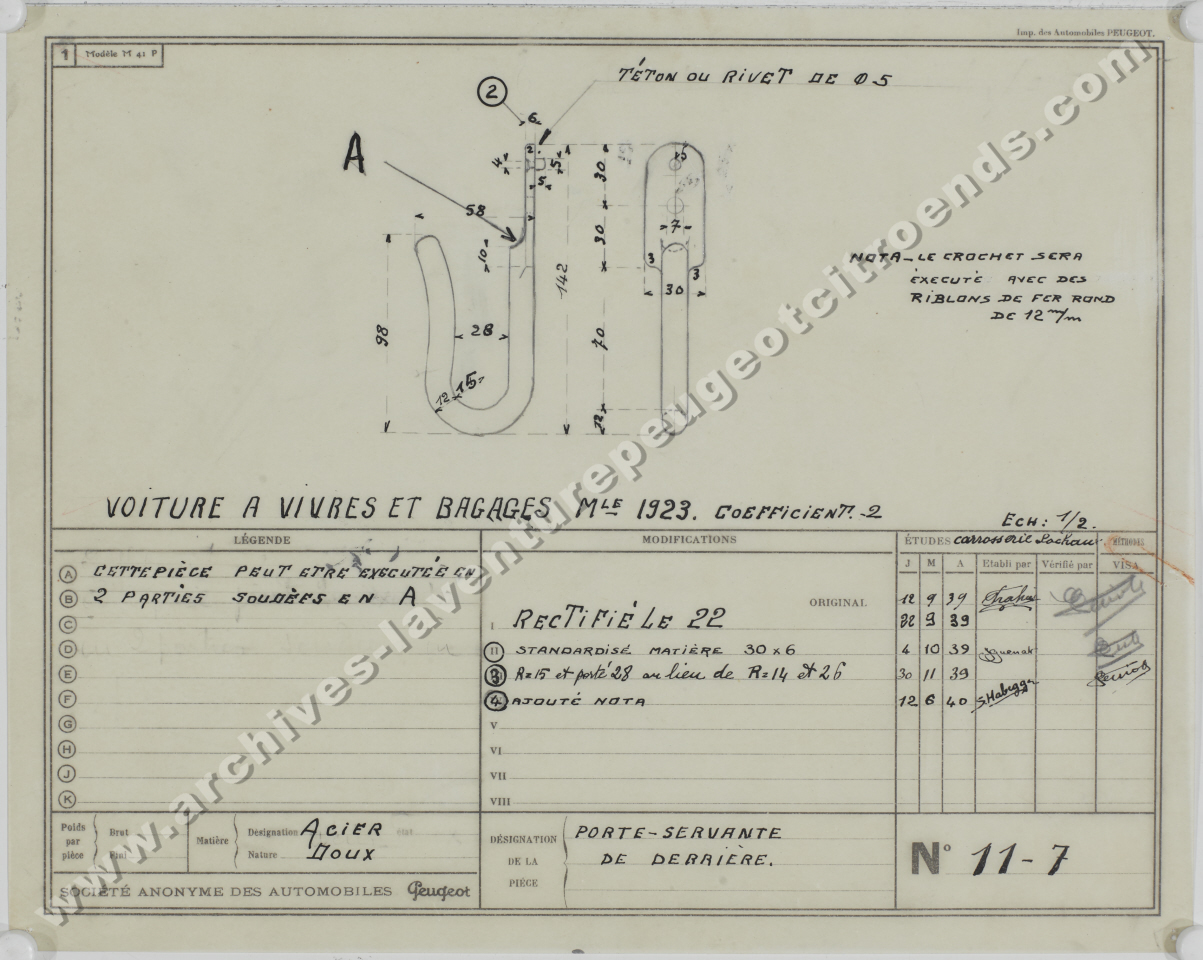 Imp. des Automobiles PEUGEOT.
1 Modèle M 41 P
TÉTON OU RIVET DE Ø 5
2
6
A
2
4
5
5
58
10
142
98
28
12
15
30
30
70
12
5
7
3
3
30
NOTA - LE CROCHET SERA
ÉXECUTÉ AVEC DES
RIBLONS DE FER ROND
DE 12 m/m
VOITURE A VIVRES ET BAGAGES MLE 1923. COEFFICIENT. 2
ECH: 1/2.
LÉGENDE
A CETTE PIÈCE PEUT ETRE EXECUTÉE EN
B 2 PARTIES SOUDÈES EN A
C
D
E
F
G
H
J
K
MODIFICATIONS
ORIGINAL
I RECTIFIÉ LE 22
II STANDARDISÉ MATIÈRE 30 x 6
3 R=15 et porté 28 au lieu de R=14 et 26
4 AJOUTÉ NOTA
V
VI
VII
VIII
ÉTUDES carrosserie Sochaux MÉTHODES
J M A Etabli par Vérifié par VISA
12 9 39
22 9 39
4 10 39
30 11 39
12 6 40
Poids par pièce Brut Fini
Matière Désignation ACIER état
Nature DOUX
DÉSIGNATION DE LA PIÉCE
PORTE-SERVANTE
DE DERRIÈRE.
N° 11-7
SOCIÉTÉ ANONYME DES AUTOMOBILES Peugeot
www.archives-laventurepeugeotcitroends.com